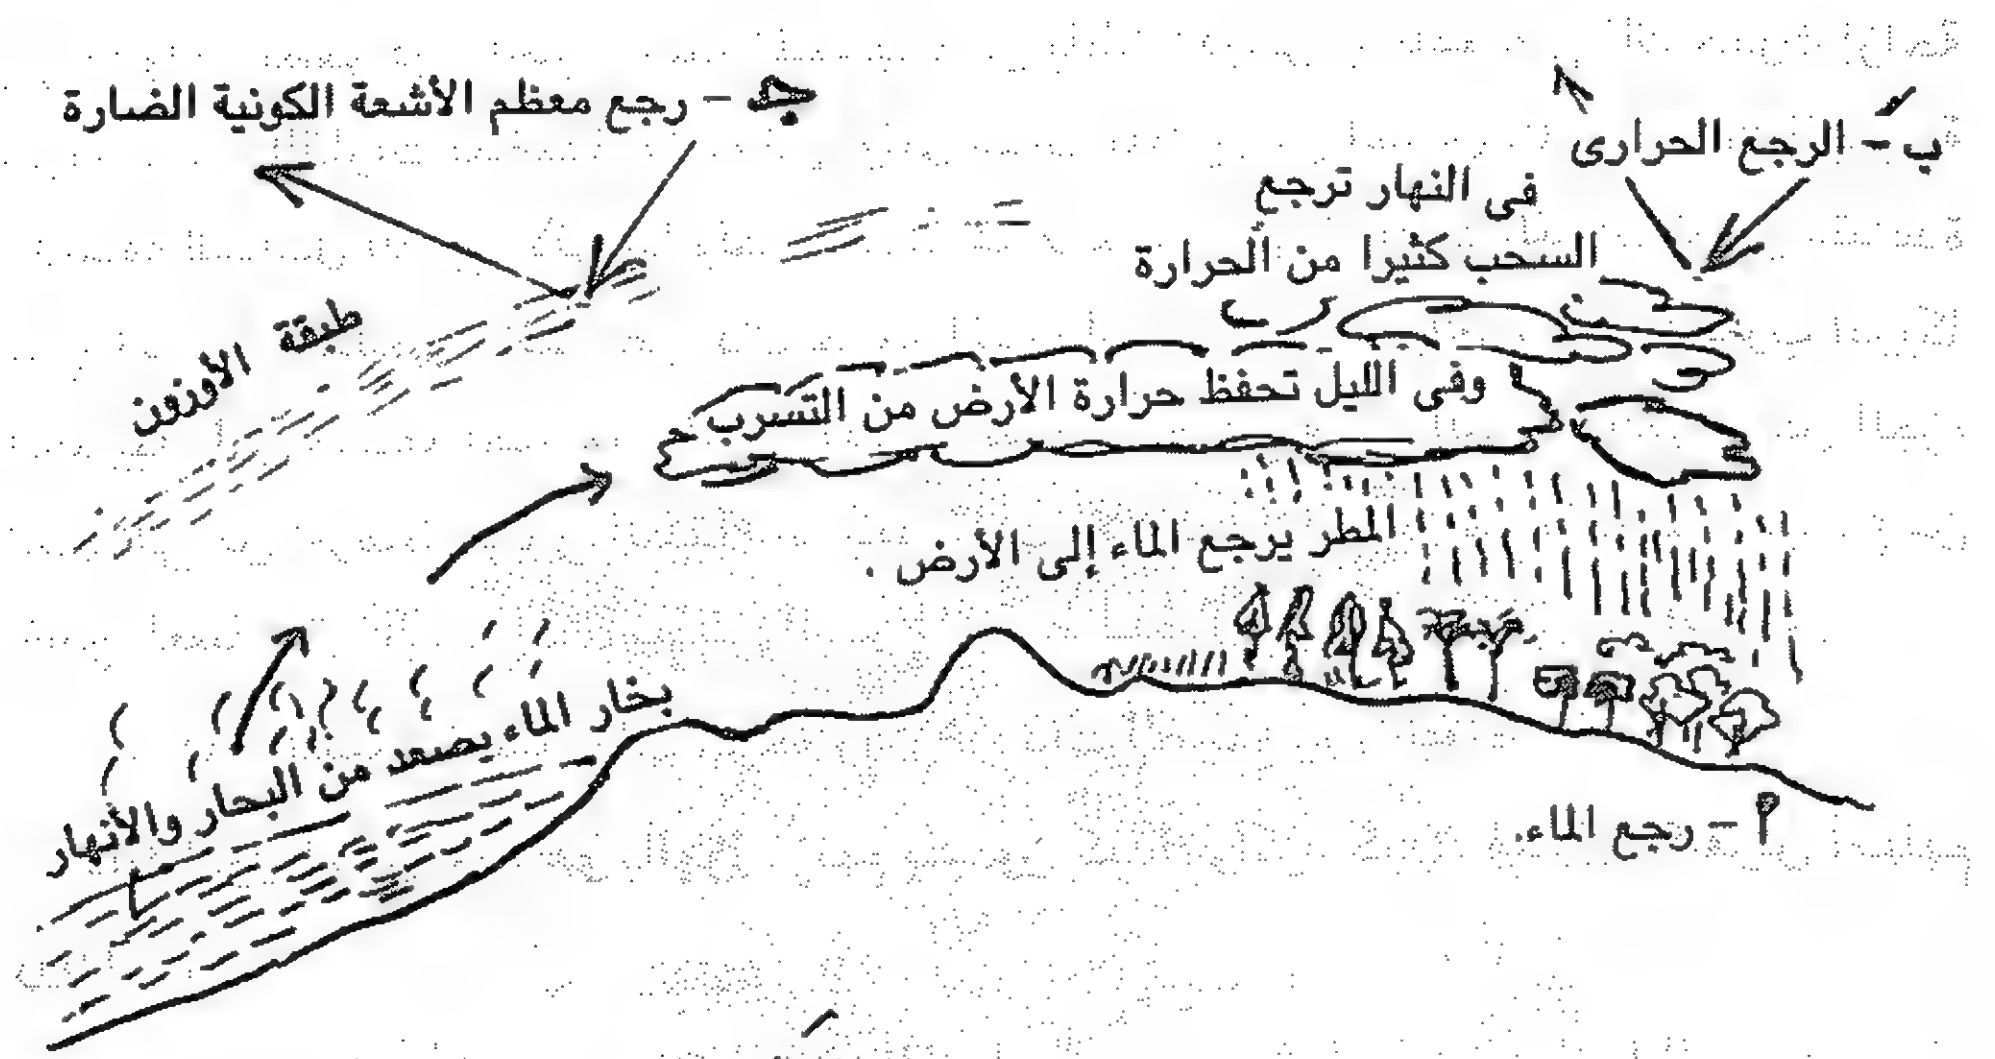 ب - الرجع الحرارى
جـ - رجع معظم الأشعة الكونية الضارة
فى النهار ترجع
السحب كثيرا من الحرارة
طبقة الأوزون
وفى الليل تحفظ حرارة الأرض من التسرب
المطر يرجع الماء إلى الأرض .
بخار الماء يصعد من البحار والأنهار
أ - رجع الماء.